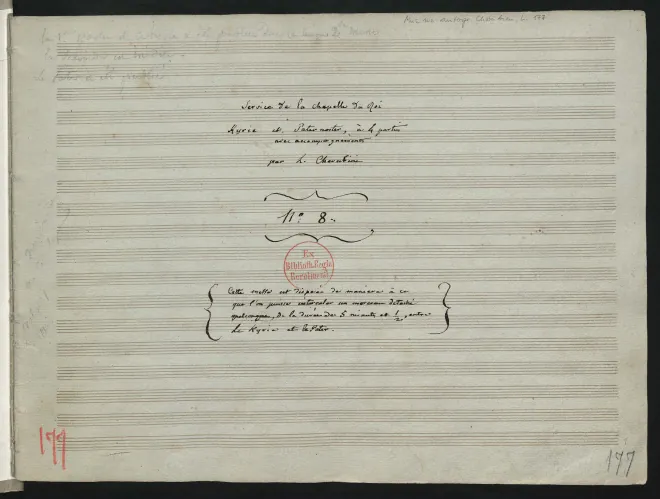 Mus. ms. autogr. Cherubini, L. 177
Service de la Chapelle du Roi
Kyrie et Pater noster, à 4 parties
avec accompagnements
par L. Cherubini
N.º 8.
Ex
Biblioth. Regia
Berolinensi
Cette messe est disposée de manière à ce
que l'on puisse intercaler un morceau détaché
quelconque, de la durée de 5 minutes et 1/2, entre
Le Kyrie et le Pater.
177
177